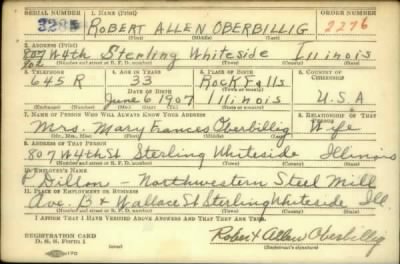 SERIAL NUMBER 1. NAME (Print) ORDER NUMBER
3285 ROBERT ALLEN OBERBILLIG 2276
(First) (Middle) (Last)
2. ADDRESS (Print)
807 W 4th Sterling Whiteside Illinois
(Number and street or R. F. D. number) (Town) (County) (State)
3. TELEPHONE 4. AGE IN YEARS 5. PLACE OF BIRTH 6. COUNTRY OF CITIZENSHIP
645 R 33 Rock Falls
DATE OF BIRTH
June 6 1907 Illinois U.S.A
(Mo.) (Day) (Yr.) (State or country)
7. NAME OF PERSON WHO WILL ALWAYS KNOW YOUR ADDRESS 8. RELATIONSHIP OF THAT PERSON
Mrs. Mary Frances Oberbillig Wife
(Mr., Mrs., Miss) (First) (Middle) (Last)
9. ADDRESS OF THAT PERSON
807 W 4th St Sterling Whiteside Illinois
(Number and street or R. F. D. number) (Town) (County) (State)
10. EMPLOYER'S NAME
Dillon - Northwestern Steel Mill
11. PLACE OF EMPLOYMENT OR BUSINESS
Ave. B & Wallace St Sterling Whiteside Ill.
(Number and street or R. F. D. number) (Town) (County) (State)
I AFFIRM THAT I HAVE VERIFIED ABOVE ANSWERS AND THAT THEY ARE TRUE.
REGISTRATION CARD
D. S. S. Form 1
Robert Allen Oberbillig
(Registrant's signature)